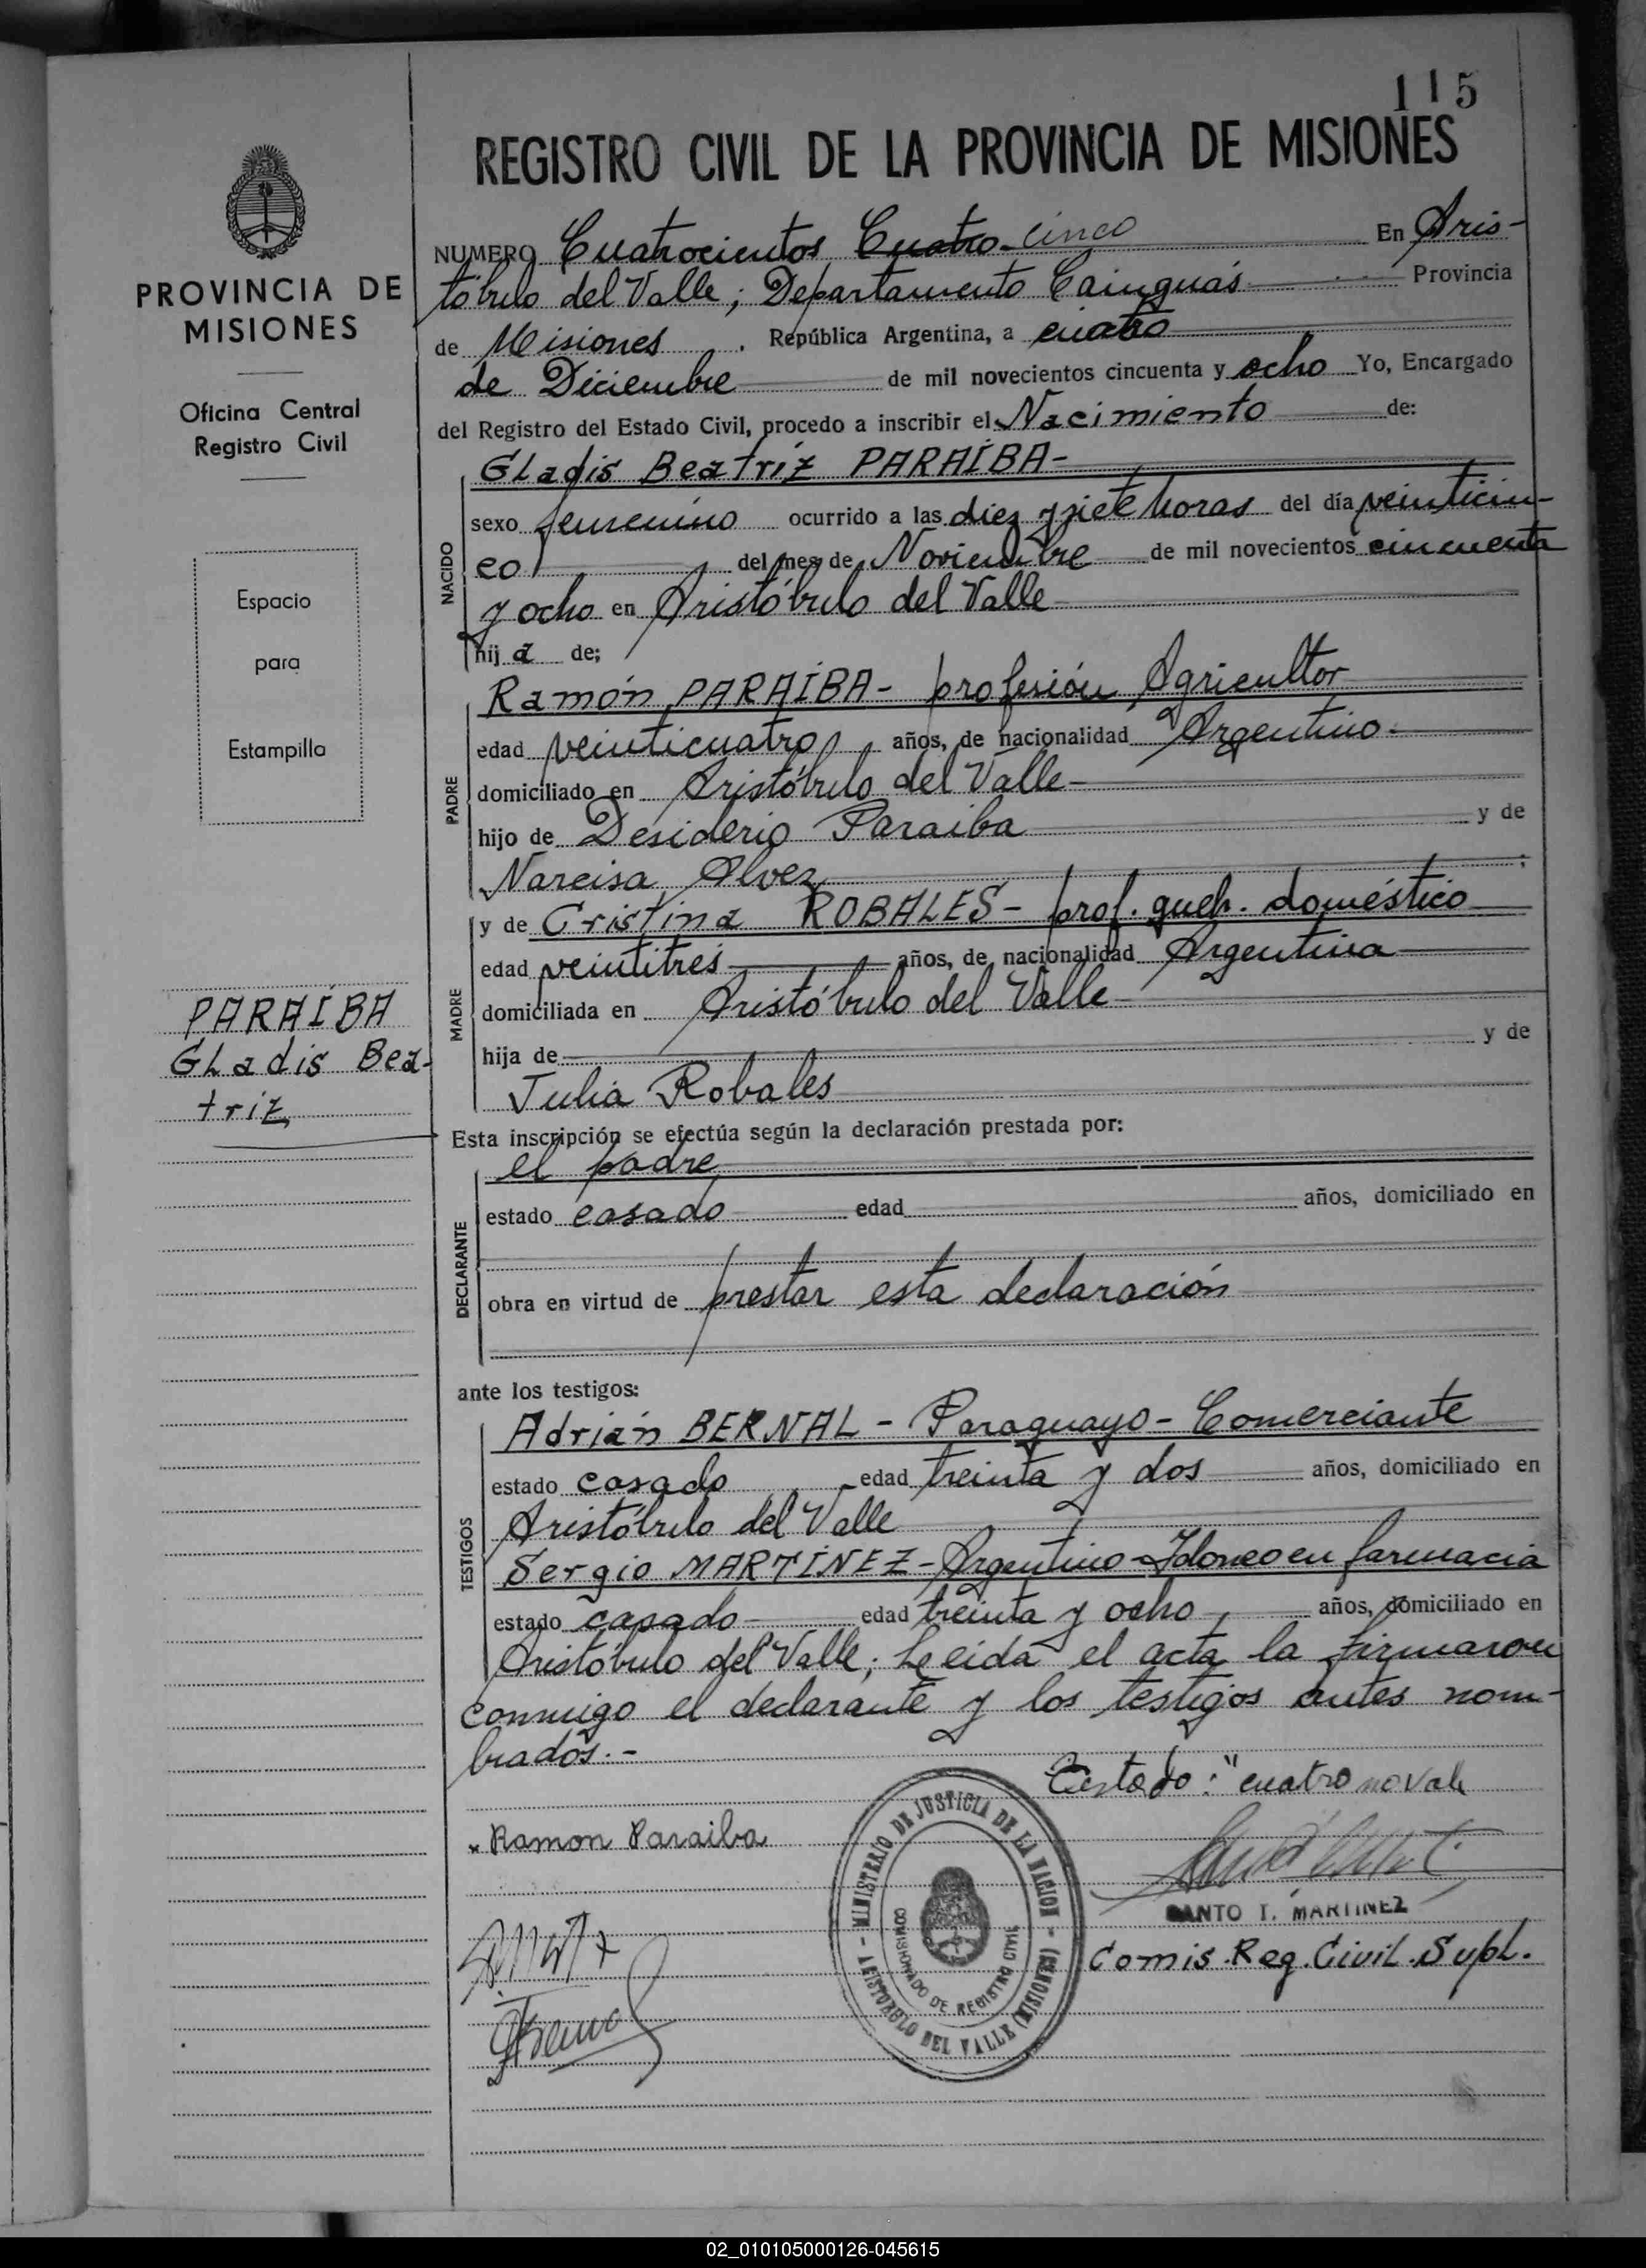 115
REGISTRO CIVIL DE LA PROVINCIA DE MISIONES
PROVINCIA DE
MISIONES
Oficina Central
Registro Civil
Espacio
para
Estampilla
PARAÍBA
Gladis Bea-
triz
NUMERO Cuatrocientos Cuatro cinco En Aris-
tóbulo del Valle; Departamento Cainguás Provincia
de Misiones . República Argentina, a cuatro
de Diciembre de mil novecientos cincuenta y ocho Yo, Encargado
del Registro del Estado Civil, procedo a inscribir el Nacimiento de:
Gladis Beatriz PARAÍBA-
NACIDO
sexo femenino ocurrido a las diez y siete horas del día veinticin-
co del mes de Noviembre de mil novecientos cincuenta
y ocho en Aristóbulo del Valle
hij a de;
Ramón PARAÍBA- profesión Agricultor
PADRE
edad veinticuatro años, de nacionalidad Argentino-
domiciliado en Aristóbulo del Valle-
hijo de Desiderio Paraiba y de
Narcisa Alvez ;
y de Cristina ROBALES- prof. queh. doméstico
MADRE
edad veintitrés años, de nacionalidad Argentina
domiciliada en Aristóbulo del Valle
hija de y de
Julia Robales
Esta inscripción se efectúa según la declaración prestada por:
el padre
DECLARANTE
estado casado edad años, domiciliado en
obra en virtud de prestar esta declaración
ante los testigos:
Adrián BERNAL - Paraguayo - Comerciante
TESTIGOS
estado casado edad treinta y dos años, domiciliado en
Aristóbulo del Valle
Sergio MARTÍNEZ - Argentino - Idoneo en farmacia
estado casado edad treinta y ocho, años, domiciliado en
Aristóbulo del Valle; Leída el acta la firmaron
conmigo el declarante y los testigos antes nom-
brados.-
Testado: "cuatro no vale
Ramon Paraiba
MINISTERIO DE JUSTICIA DE LA NACION - ARISTOBULO DEL VALLE (MISIONES)
COMISIONADO DE REGISTRO CIVIL
SANTO T. MARTINEZ
Comis. Reg. Civil. Supl.
02_010105000126-045615